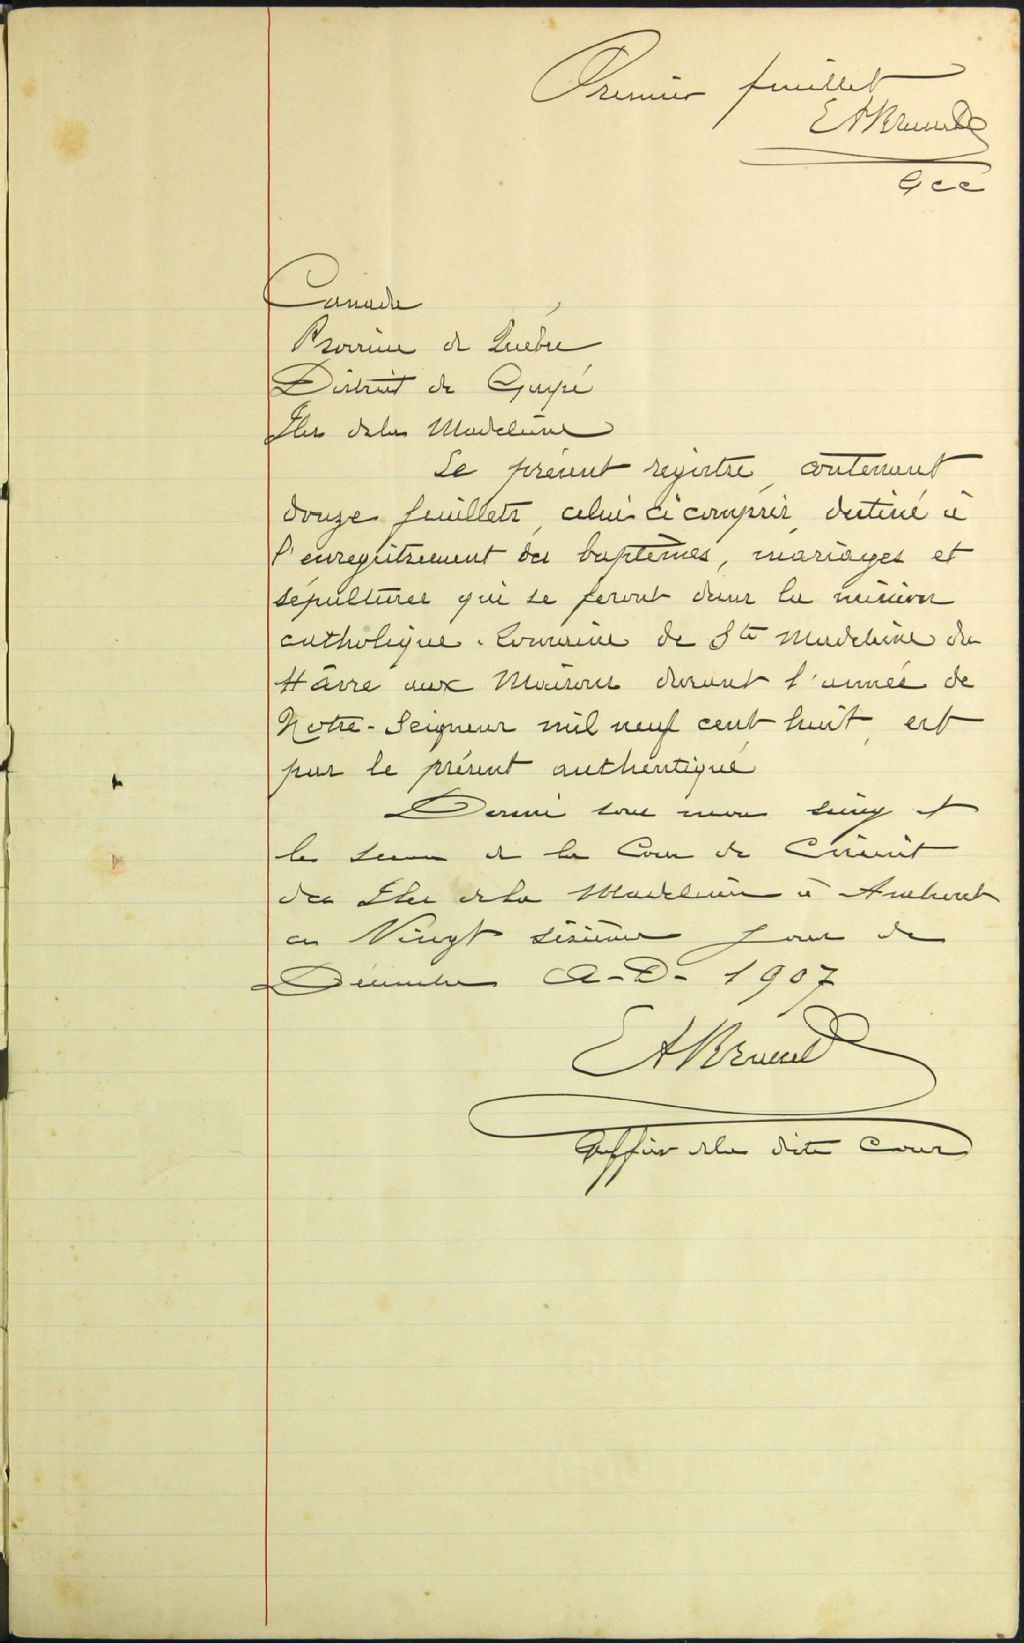 Premier feuillet
E A Brunet
G C C
Canada
Province de Québec
District de Gaspé
Iles de la Madeleine
Le présent registre, contenant
douze feuillets, celui ci compris, destiné à
l'enregistrement des baptêmes, mariages et
sépultures qui se feront dans la mission
catholique-Romaine de Ste Madeleine du
Hâvre aux Maisons durant l'année de
Notre-Seigneur mil neuf cent huit, est
par le présent authentiqué
Donné sous mon seing et
le sceau de la Cour de Circuit
des Iles de la Madeleine à Amherst
ce Vingt sixième jour de
Décembre A-D- 1907
E A Brunet
Greffier de la dite Cour